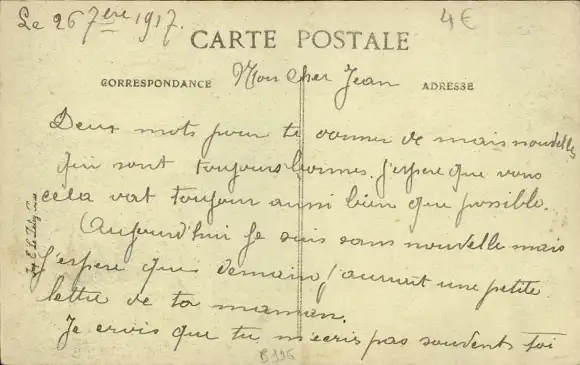 Le 26 7ère 1917.
4€
CARTE POSTALE
CORRESPONDANCE
Mon cher Jean
ADRESSE
Deux mots pour te donner de mais nouvelles
qui sont toujours bonnes. j'espere que vous
cela vat toujour aussi bien que possible.
Aujourd'hui je suis sans nouvelle mais
J'espere que demain j'aurait une petite
lettre de ta maman.
Je crois que tu m'ecris pas souvents toi
B196